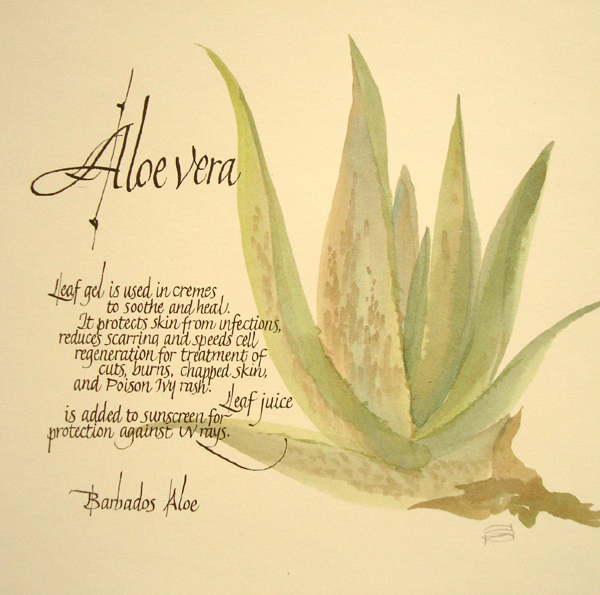 Aloe vera
Leaf gel is used in cremes
to soothe and heal.
It protects skin from infections,
reduces scarring and speeds cell
regeneration for treatment of
cuts, burns, chapped skin,
and Poison Ivy rash.
Leaf juice
is added to sunscreen for
protection against UV rays.
Barbados Aloe